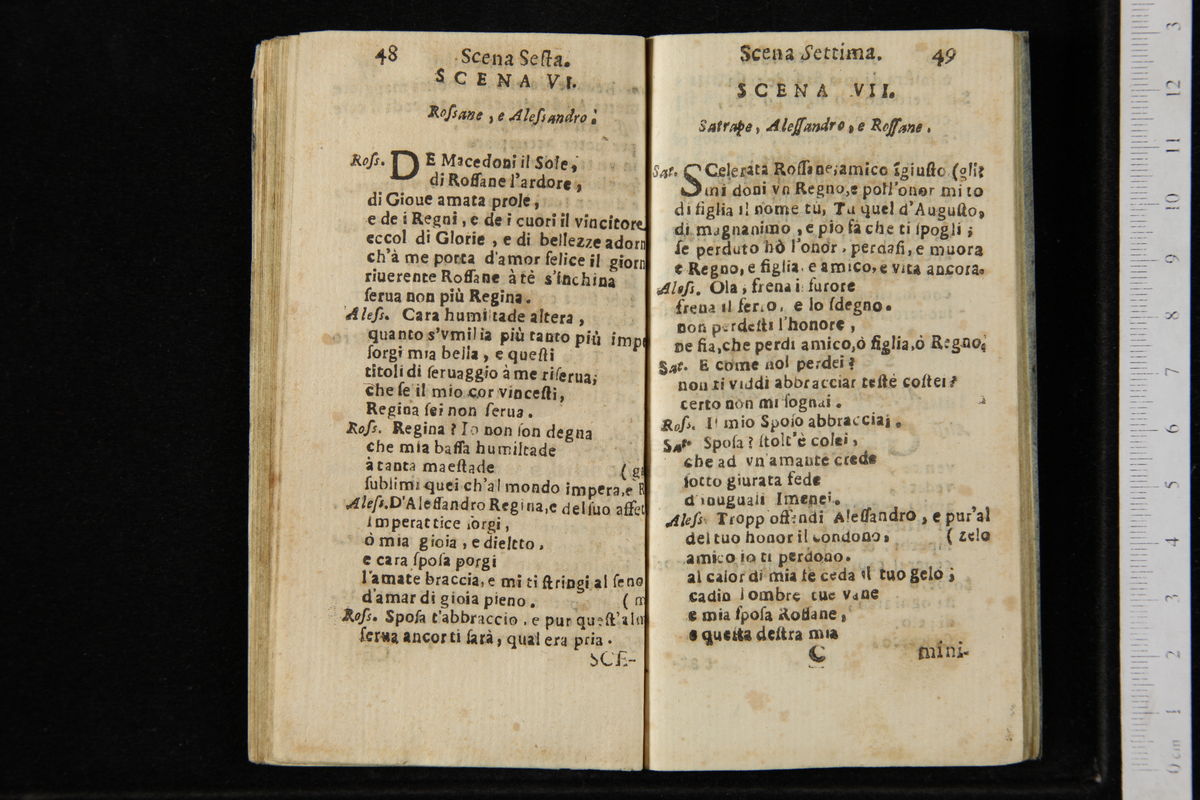 48 Scena Seſta.
SCENA VI.
Roſsane, e Aleſsandro.
Roſs. DE Macedoni il Sole,
di Roſſane l'ardore,
di Gioue amata prole,
e de i Regni, e de i cuori il vincitore
eccol di Glorie, e di bellezze adorn
ch'à me porta d'amor felice il giorn
riuerente Roſſane à tè s'inchina
ſerua non più Regina.
Aleſs. Cara humiltade altera,
quanto s'vmilia più tanto più impe
ſorgi mia bella, e queſti
titoli di ſeruaggio à me riſerua;
che ſe il mio cor vinceſti,
Regina ſei non ſerua.
Roſs. Regina? Io non ſon degna
che mia baſſa humiltade
à tanta maeſtade (g
ſublimi quei ch'al mondo impera, e R
Aleſs. D'Aleſſandro Regina, e del ſuo affet
Imperattice ſorgi,
ò mia gioia, e dieltto,
e cara ſpoſa porgi
l'amate braccia, e mi ti ſtringi al ſeno
d'amar di gioia pieno. (m
Roſs. Spoſa t'abbraccio, e pur queſt'alm
ſerua ancor ti ſarà, qual era pria.
SCE-
Scena Settima. 49
SCENA VII.
Satrape, Aleſſandro, e Roſſane.
Sat. SCelerata Roſſane; amico ĩgiuſto (gli?
mi doni vn Regno, e poi l'onor mi to
di figlia il nome tu, Tu quel d'Auguſto,
di magnanimo, e pio fà che ti ſpogli;
ſe perduto hò l'onor, perdaſi, e muora
e Regno, e figlia, e amico, e vita ancora.
Aleſs. Ola; frena il furore
frena il ferro, e lo ſdegno.
non perdeſti l'honore,
ne fia, che perdi amico, ò figlia, ò Regno.
Sat. E come nol perdei?
non ti viddi abbracciar teſtè coſtei?
certo non mi ſognai.
Roſs. Il mio Spoſo abbracciai.
Sat. Spoſa? ſtolt'è colei,
che ad vn'amante crede
ſotto giurata fede
d'inuguali Imenei.
Aleſs. Tropp'offendi Aleſſandro, e pur'al
del tuo honor il condono, (zelo
amico io ti perdono.
al calor di mia fè ceda il tuo gelo;
cadin l'ombre tue vane
e mia ſpoſa Roſſane,
e queſta deſtra mia
C mini-
0 cm 1 2 3 4 5 6 7 8 9 10 11 12 3